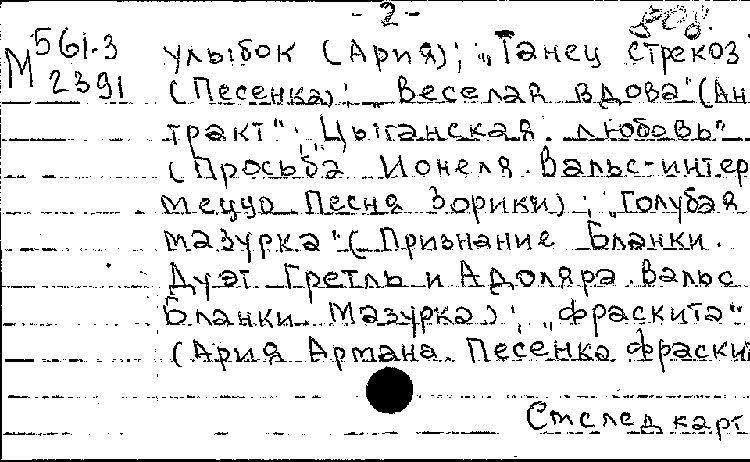 - 2 -
808.
М 561.3
2391
улыбок (Ария); „Танец стрекоз
(Песенка); „Веселая вдова" (Ан
тракт"; „Цыганская любовь"
(Просьба Ионеля. Вальс-интер
меццо Песня Зорики); „Голубая
мазурка" (Признание Бланки.
Дуэт Гретль и Адоляра. Вальс
Бланки Мазурка); „Фраскита"
(Ария Армана. Песенка Фраски
См след карт